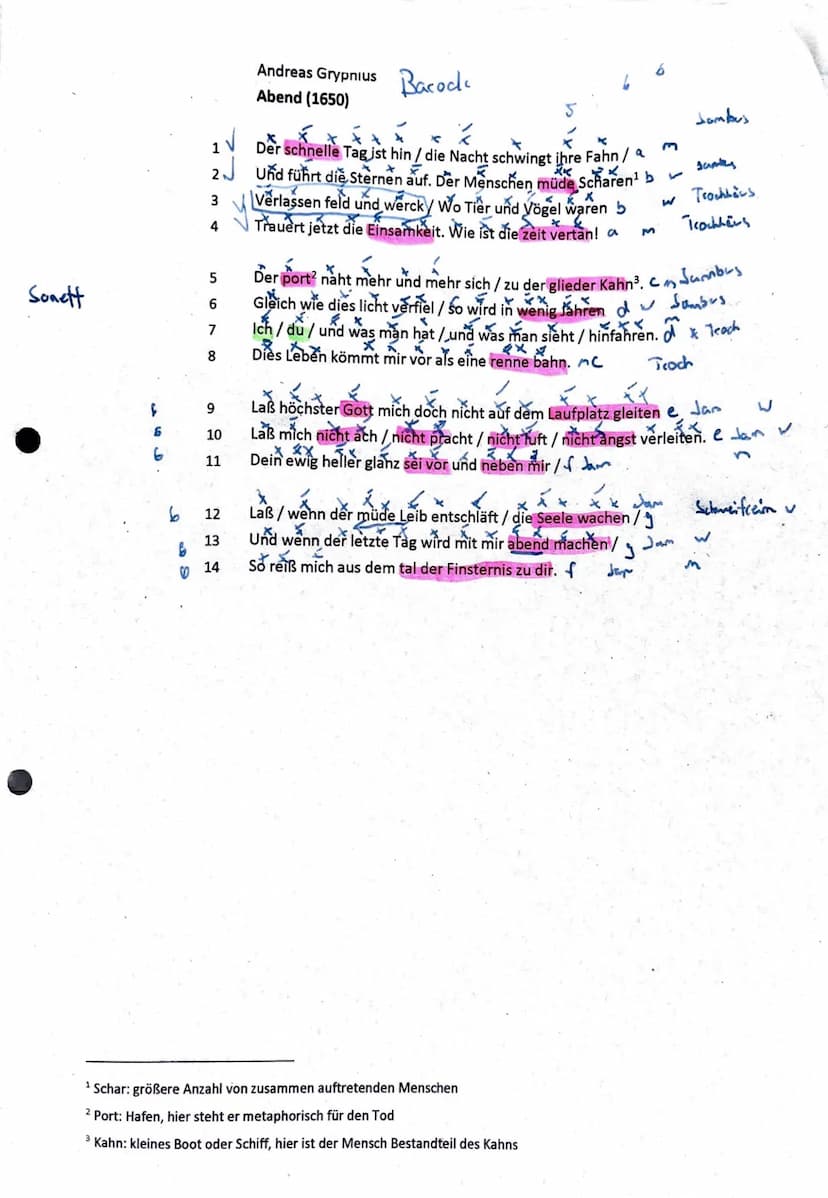 Andreas Gryphius Barock
Abend (1650)
6 6
5
1 Der schnelle Tag ist hin / die Nacht schwingt ihre Fahn / a m Jambus
2 Und führt die Sternen auf. Der Menschen müde Scharen¹ b w Jambus
3 Verlassen feld und werck / Wo Tier und Vögel waren b w Trochhäus
4 Trauert jetzt die Einsamkeit. Wie ist die zeit vertan! a m Trochhäus
5 Der port² naht mehr und mehr sich / zu der glieder Kahn³. c m Jambus
Sonett
6 Gleich wie dies licht verfiel / so wird in wenig Jahren d w Jambus
7 Ich / du / und was man hat / und was man sieht / hinfahren. d Troch
8 Dies Leben kömmt mir vor als eine renne bahn. m c Troch
9 Laß höchster Gott mich doch nicht auf dem Laufplatz gleiten e Jam w
6 10 Laß mich nicht ach / nicht pracht / nicht luft / nicht angst verleiten. e Jam w
6 11 Dein ewig heller glanz sei vor und neben mir / f Jam m
6 12 Laß / wenn der müde Leib entschläft / die Seele wachen / g Jam Schweifreim w
6 13 Und wenn der letzte Tag wird mit mir abend machen / g Jam w
14 So reiß mich aus dem tal der Finsternis zu dir. f Jam m
¹ Schar: größere Anzahl von zusammen auftretenden Menschen
² Port: Hafen, hier steht er metaphorisch für den Tod
³ Kahn: kleines Boot oder Schiff, hier ist der Mensch Bestandteil des Kahns